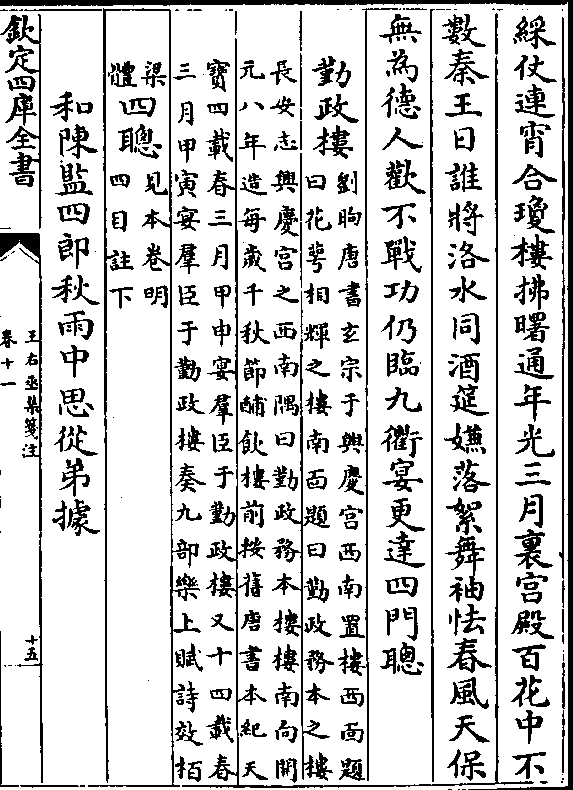 綵仗連宵合瓊樓拂曙通年光三月裏宮殿百花中不
數秦王日誰將洛水同酒筵嫌落絮舞袖怯春風天保
無為德人歡不戰功仍臨九衢宴更達四門聰
勤政樓
劉昫唐書玄宗于興慶宮西南置樓西面題
曰花萼相輝之樓南面題曰勤政務本之樓
長安志興慶宮之西南隅曰勤政務本樓樓南向開
元八年造每歲千秋節酺飲樓前按舊唐書本紀天
寶四載春三月甲申宴羣臣于勤政樓又十四載春
三月甲寅宴羣臣于勤政樓奏九部樂上賦詩效栢
梁
體
四聰
見本卷明
四目註下
和陳監四郎秋雨中思從弟據
欽定四庫全書
王右丞集箋注
卷十一
十五